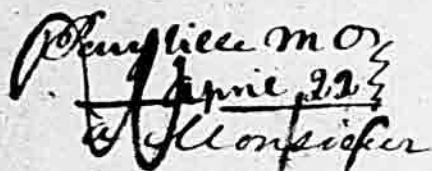 Perryville MO
April 22
à Monsieur